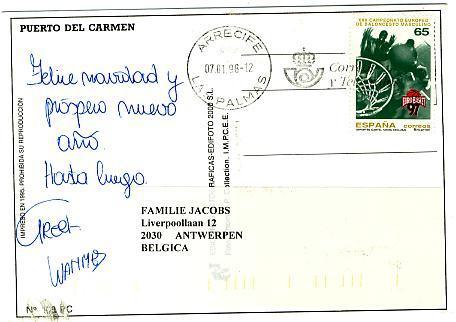 PUERTO DEL CARMEN
Feliz navidad y
próspero nuevo
año.
Hasta luego.
ARRECIFE
07.01.98-12
LAS PALMAS
Corr
y Te
XXX CAMPEONATO EUROPEO
DE BALONCESTO MASCULINO
65
97
ESPAÑA correos
IMPRESO EN 1995. PROHIBIDA SU REPRODUCCION
GRAFICAS-EDIFOTO 2000 S.L.
Collection. I.M.P.C.E.E.
FAMILIE JACOBS
Liverpoollaan 12
2030 ANTWERPEN
BELGICA
Nº PC